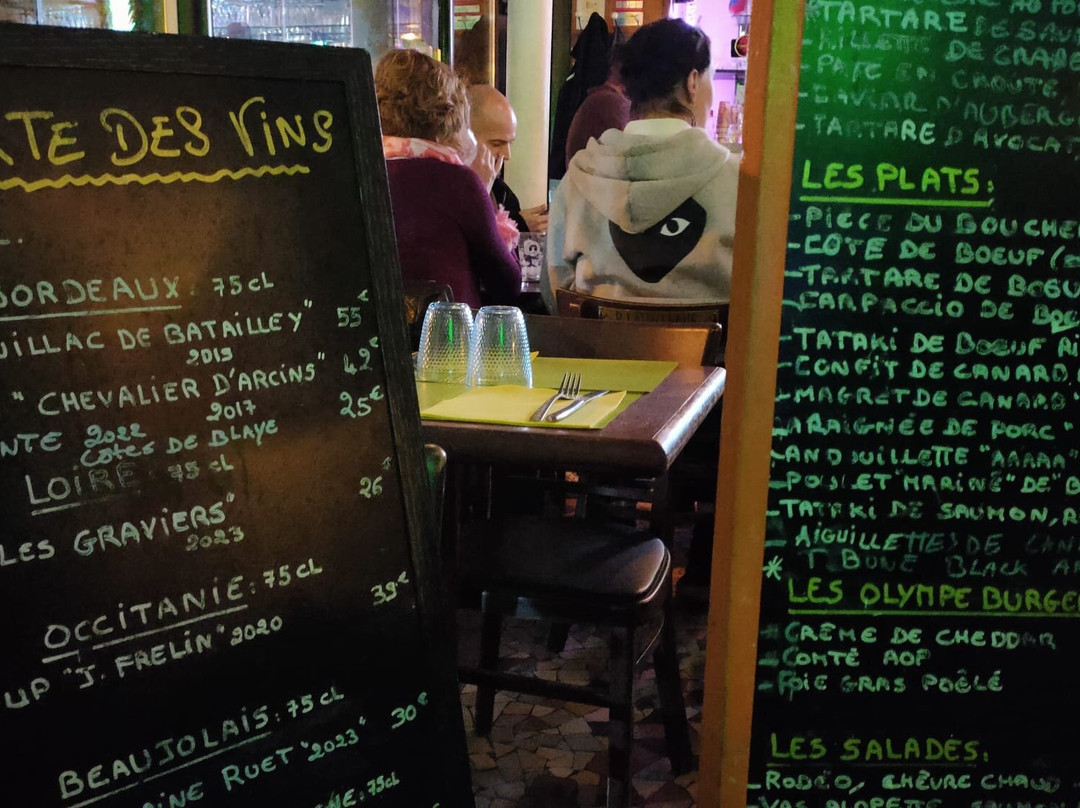 TE DES VINS
BORDEAUX : 75 cl
UILLAC DE BATAILLEY" 55€
2019
"CHEVALIER D'ARCINS" 42€
2017
NTE 2022 25€
Côtes DE BLAYE
LOIRE : 75 cl
26
LES GRAVIERS"
2023
OCCITANIE : 75 cl
39€
UP "J. FRELIN" 2020
BEAUJOLAIS : 75 cl
INE RUET "2023" 30€
NE : 75cl
TARTARE DE SAU
-RILLETTE DE CRABE
-PATE EN CROUTE
-CAVIAR D'AUBERG
-TARTARE D'AVOCAT
LES PLATS :
-PIECE DU BOUCHE
-COTE DE BOEUF (
-TARTARE DE BOEU
-CARPACCIO DE BOE
-TATAKI DE BOEUF RI
-CONFIT DE CANARD
-MAGRET DE CANARD "
ARAIGNÉE DE PORC "
ANDOUILLETTE "AAAAA"
-POULET "MARINE" DE "B
-TATAKI DE SAUMON, R
-AIGUILLETTES DE CAN
* T BONE BLACK AN
LES OLYMPE BURGE
-CRÈME DE CHEDDAR
-COMTÉ AOP
-FOIE GRAS POÊLÉ
LES SALADES :
-RODÉO, CHÈVRE CHAUD